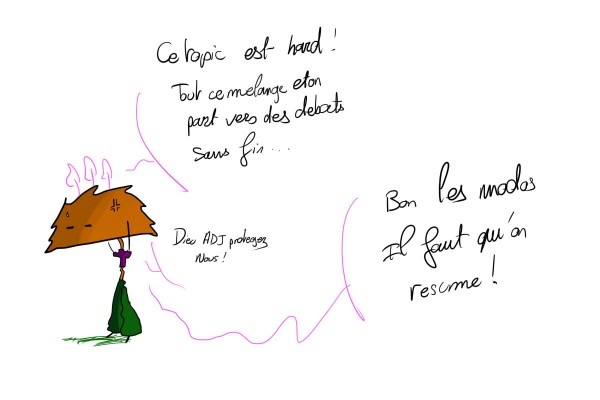 Ce topic est hard !
Tout ce melange et on
part vers des debats
sans fin...
Dieu ADJ protegez
Nous !
Bon les modos
Il faut qu'on
resume !